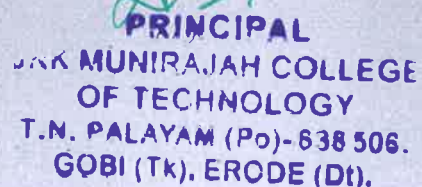 PRINCIPAL
JKK MUNIRAJAH COLLEGE
OF TECHNOLOGY
T.N. PALAYAM (Po)-638 506.
GOBI (TK), ERODE (Dt).